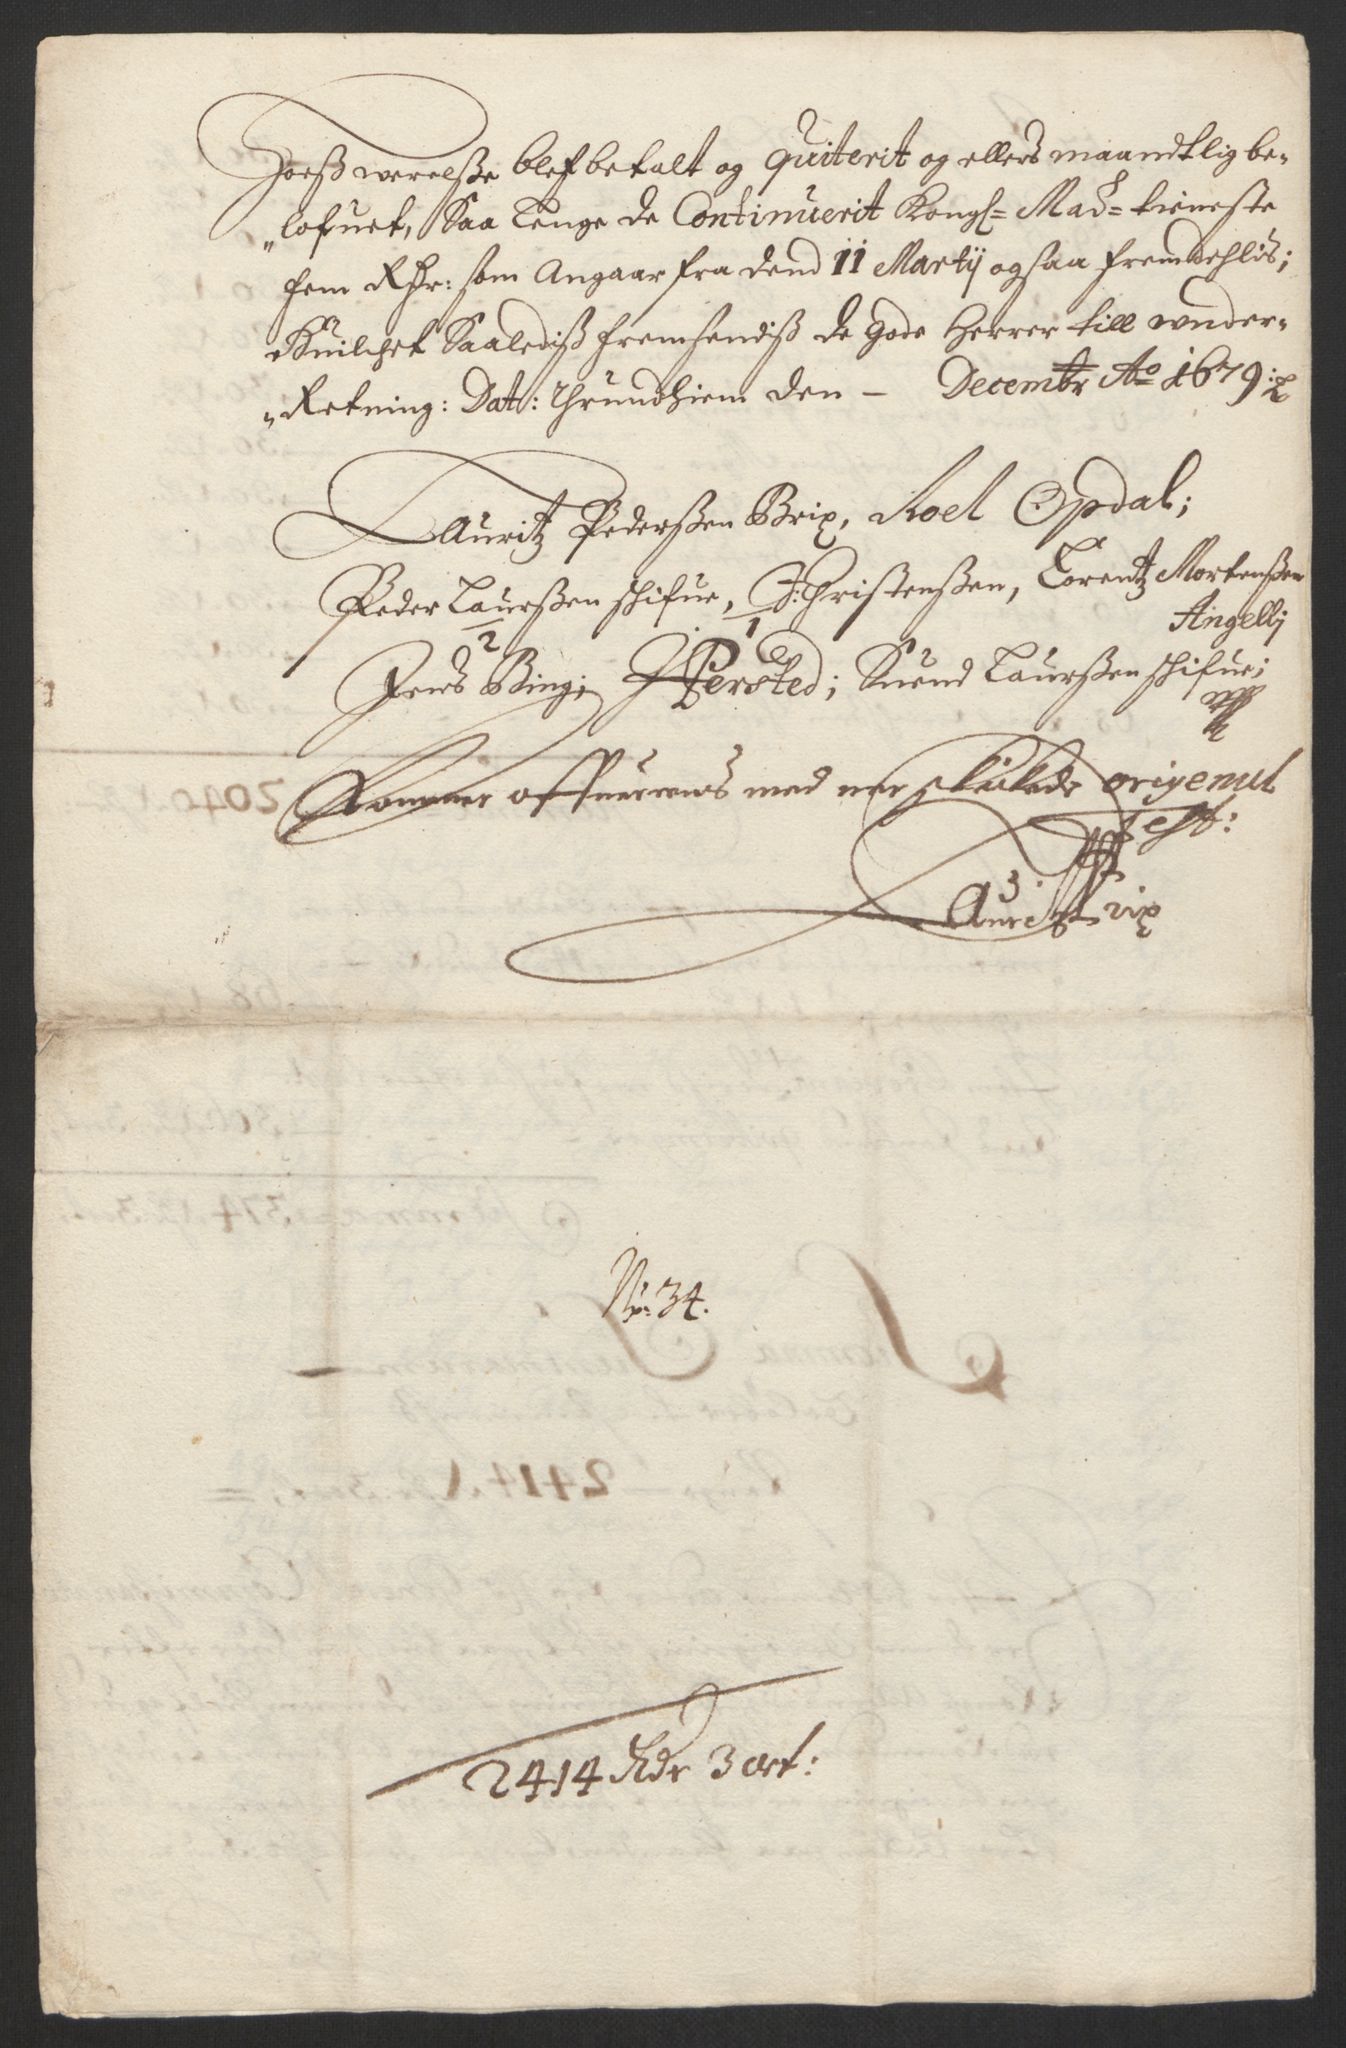 Hoeß werelße blef betalt og Quiterit og ellers maandtlig be-
"lofuet, Saa Lenge de Continuerit Kongl= Maÿ= tieneste
fem Rdr: som Angaar fra dend 11 Martij ogsaa fremdehlis;
Huilchet Saalediß fremsendiß de gode Herrer till wnder-
"Retning: Dat: Thrundhiem den - Decembr Ao 1679:
Lauritz Pederßen Brix, Roel Opdal;
Peder Laurßen schifue, Christenßen, Lorentz Mortenßen
Angell;
Jens Bing; Hersted; Suend Laurßen schifue;
Kommer offuerrens med originul
Test:
Lauritz Brix
No: 34.
2414 Rdr 3 ort: